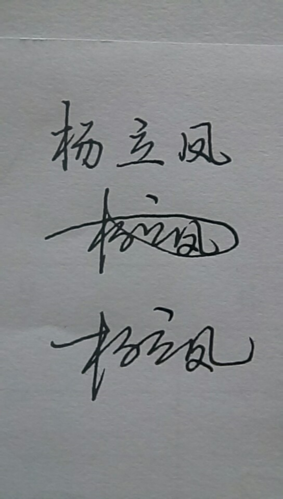 杨立凤
杨立凤
杨立凤